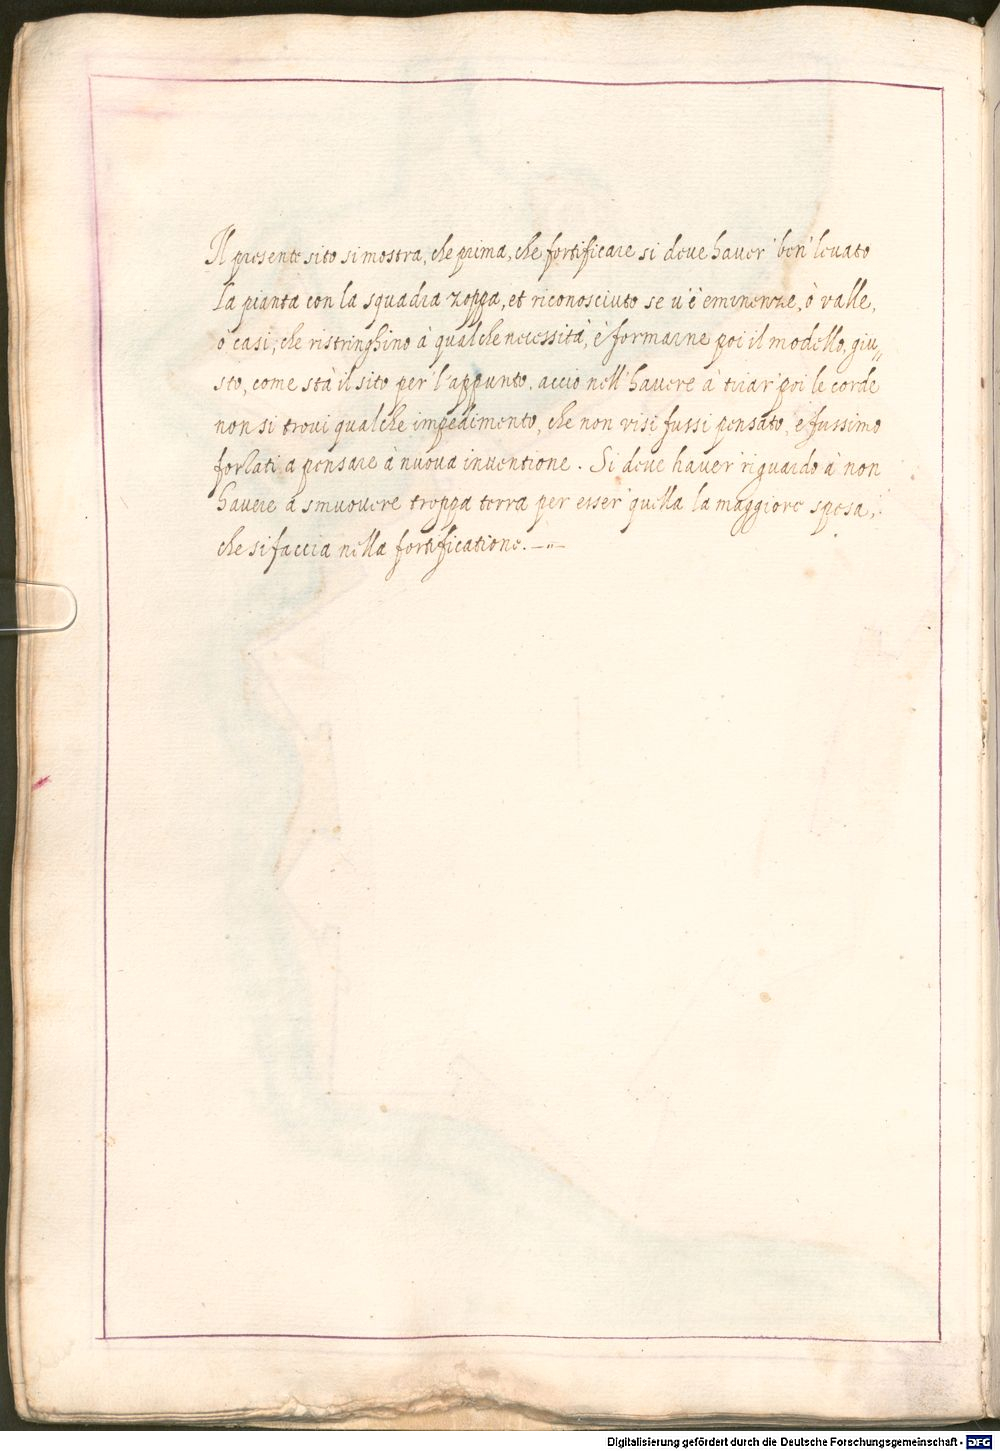 Il presente sito si mostra, che prima, che fortificare si deve haver' ben' levato
la pianta con la squadra zoppa, et riconosciuto se u'è eminenze, ò valle,
ò casi, che ristringhino à qualche necessità, è formarne poi il modello, giu„
sto, come stà il sito per l'appunto. acciò nell'havere à tirar' poi le corde
non si trovi qualche impedimento, che non visi fussi pensato, e fussimo
forzati a pensare à nuova inventione. Si deve haver' riguardo à non
havere à smuovere troppa terra per esser' quella la maggiore spesa,
che si faccia nella fortificatione.
Digitalisierung gefördert durch die Deutsche Forschungsgemeinschaft - DFG